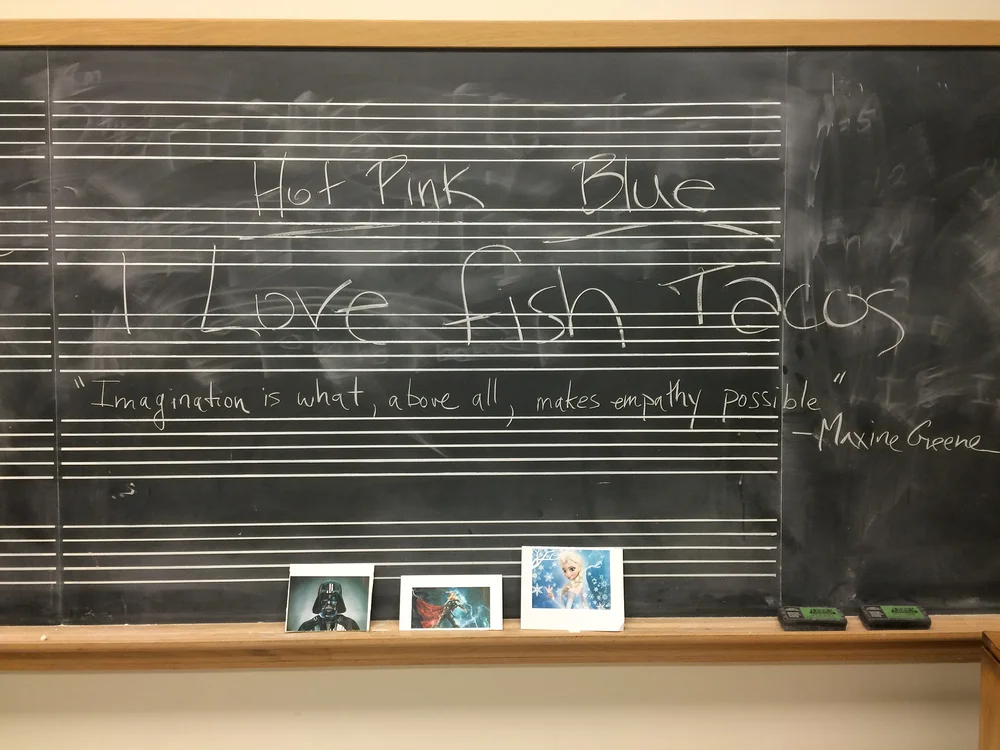 Hot Pink Blue
I Love fish Tacos
"Imagination is what, above all, makes empathy possible"
—Maxine Greene